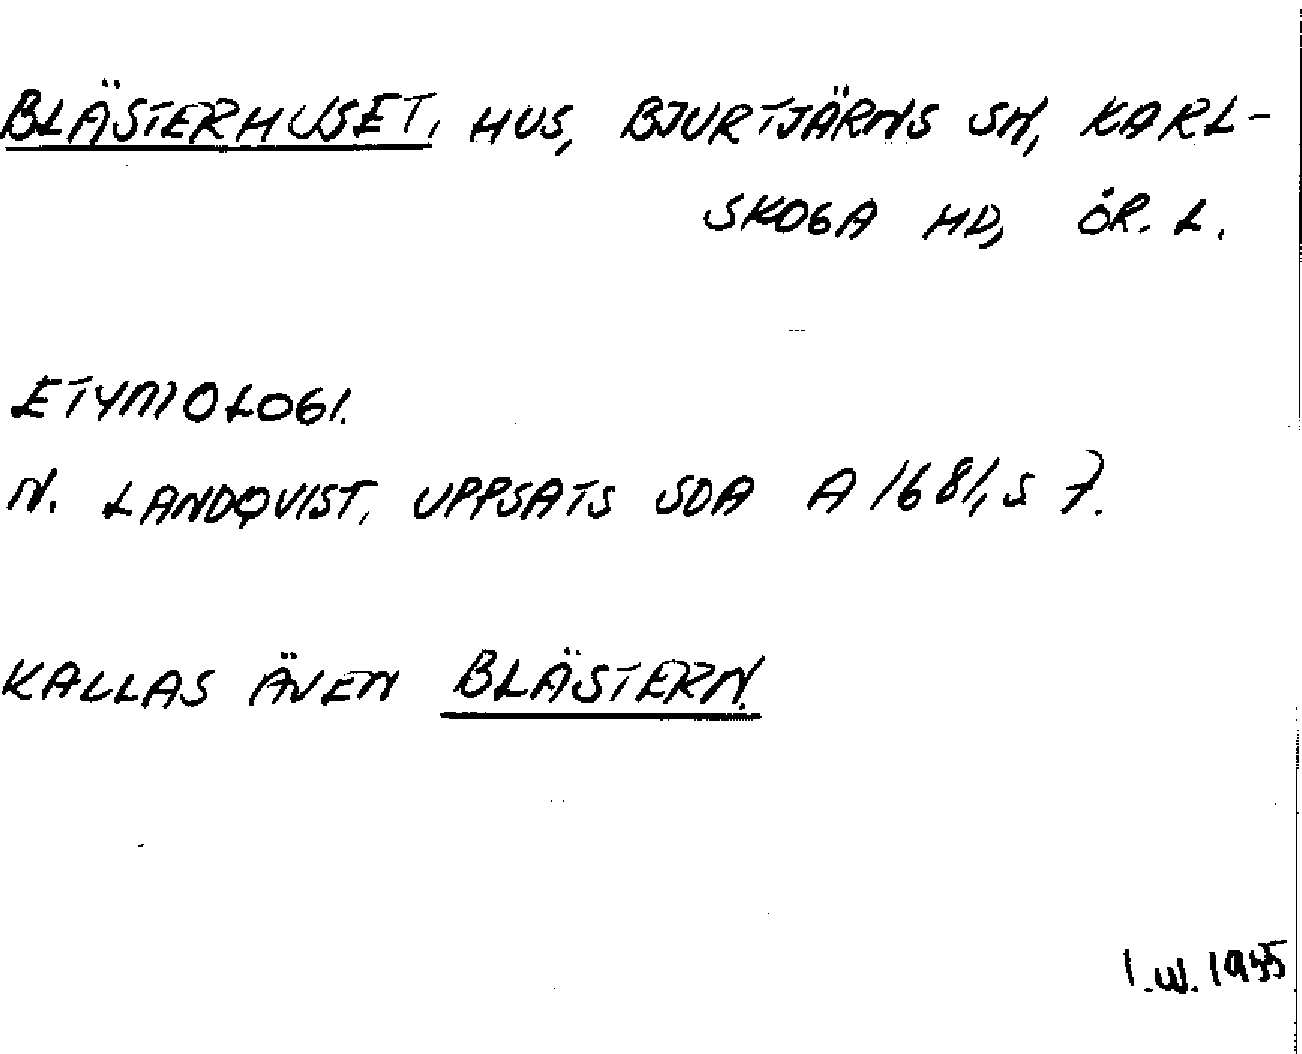 BLÄSTERHUSET, HUS, BJURTJÄRNS SN, KARL-
SKOGA HD, ÖR. L.
ETYMOLOGI.
N. LANDQVIST, UPPSATS SOA A 1681, S 7.
KALLAS ÄVEN BLÄSTERN.
I.W. 1955